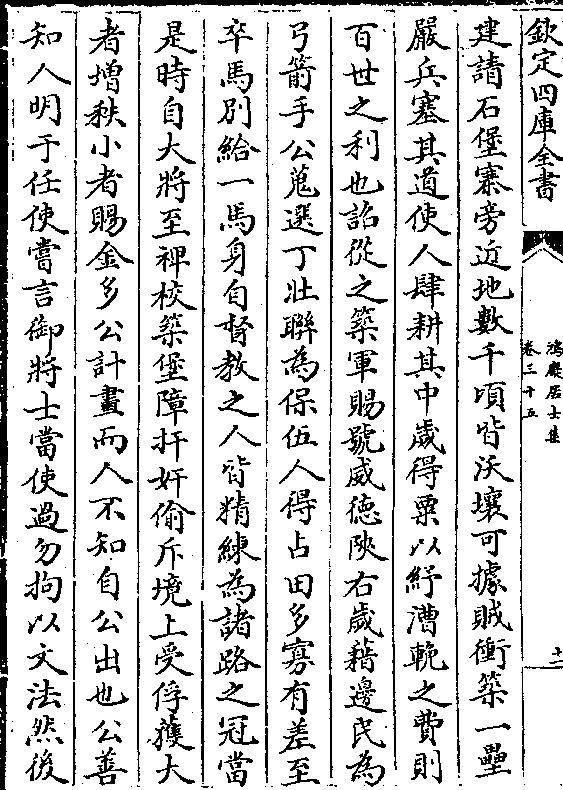 欽定四庫全書
鴻慶居士集
卷三十五
十二
建請石堡寨旁近地數千頃皆沃壤可據賊衝築一壘
嚴兵塞其道使人肆耕其中歲得粟以紓漕輓之費則
百世之利也詔從之築軍賜號威德陜右歲藉邊民為
弓箭手公蒐選丁壯聯為保伍人得占田多寡有差至
卒馬別給一馬身自督教之人皆精練為諸路之冠當
是時自大將至裨校築堡障扞奸偷斥境上受俘獲大
者增秩小者賜金多公計畫而人不知自公出也公善
知人明于任使嘗言御將士當使過勿拘以文法然後